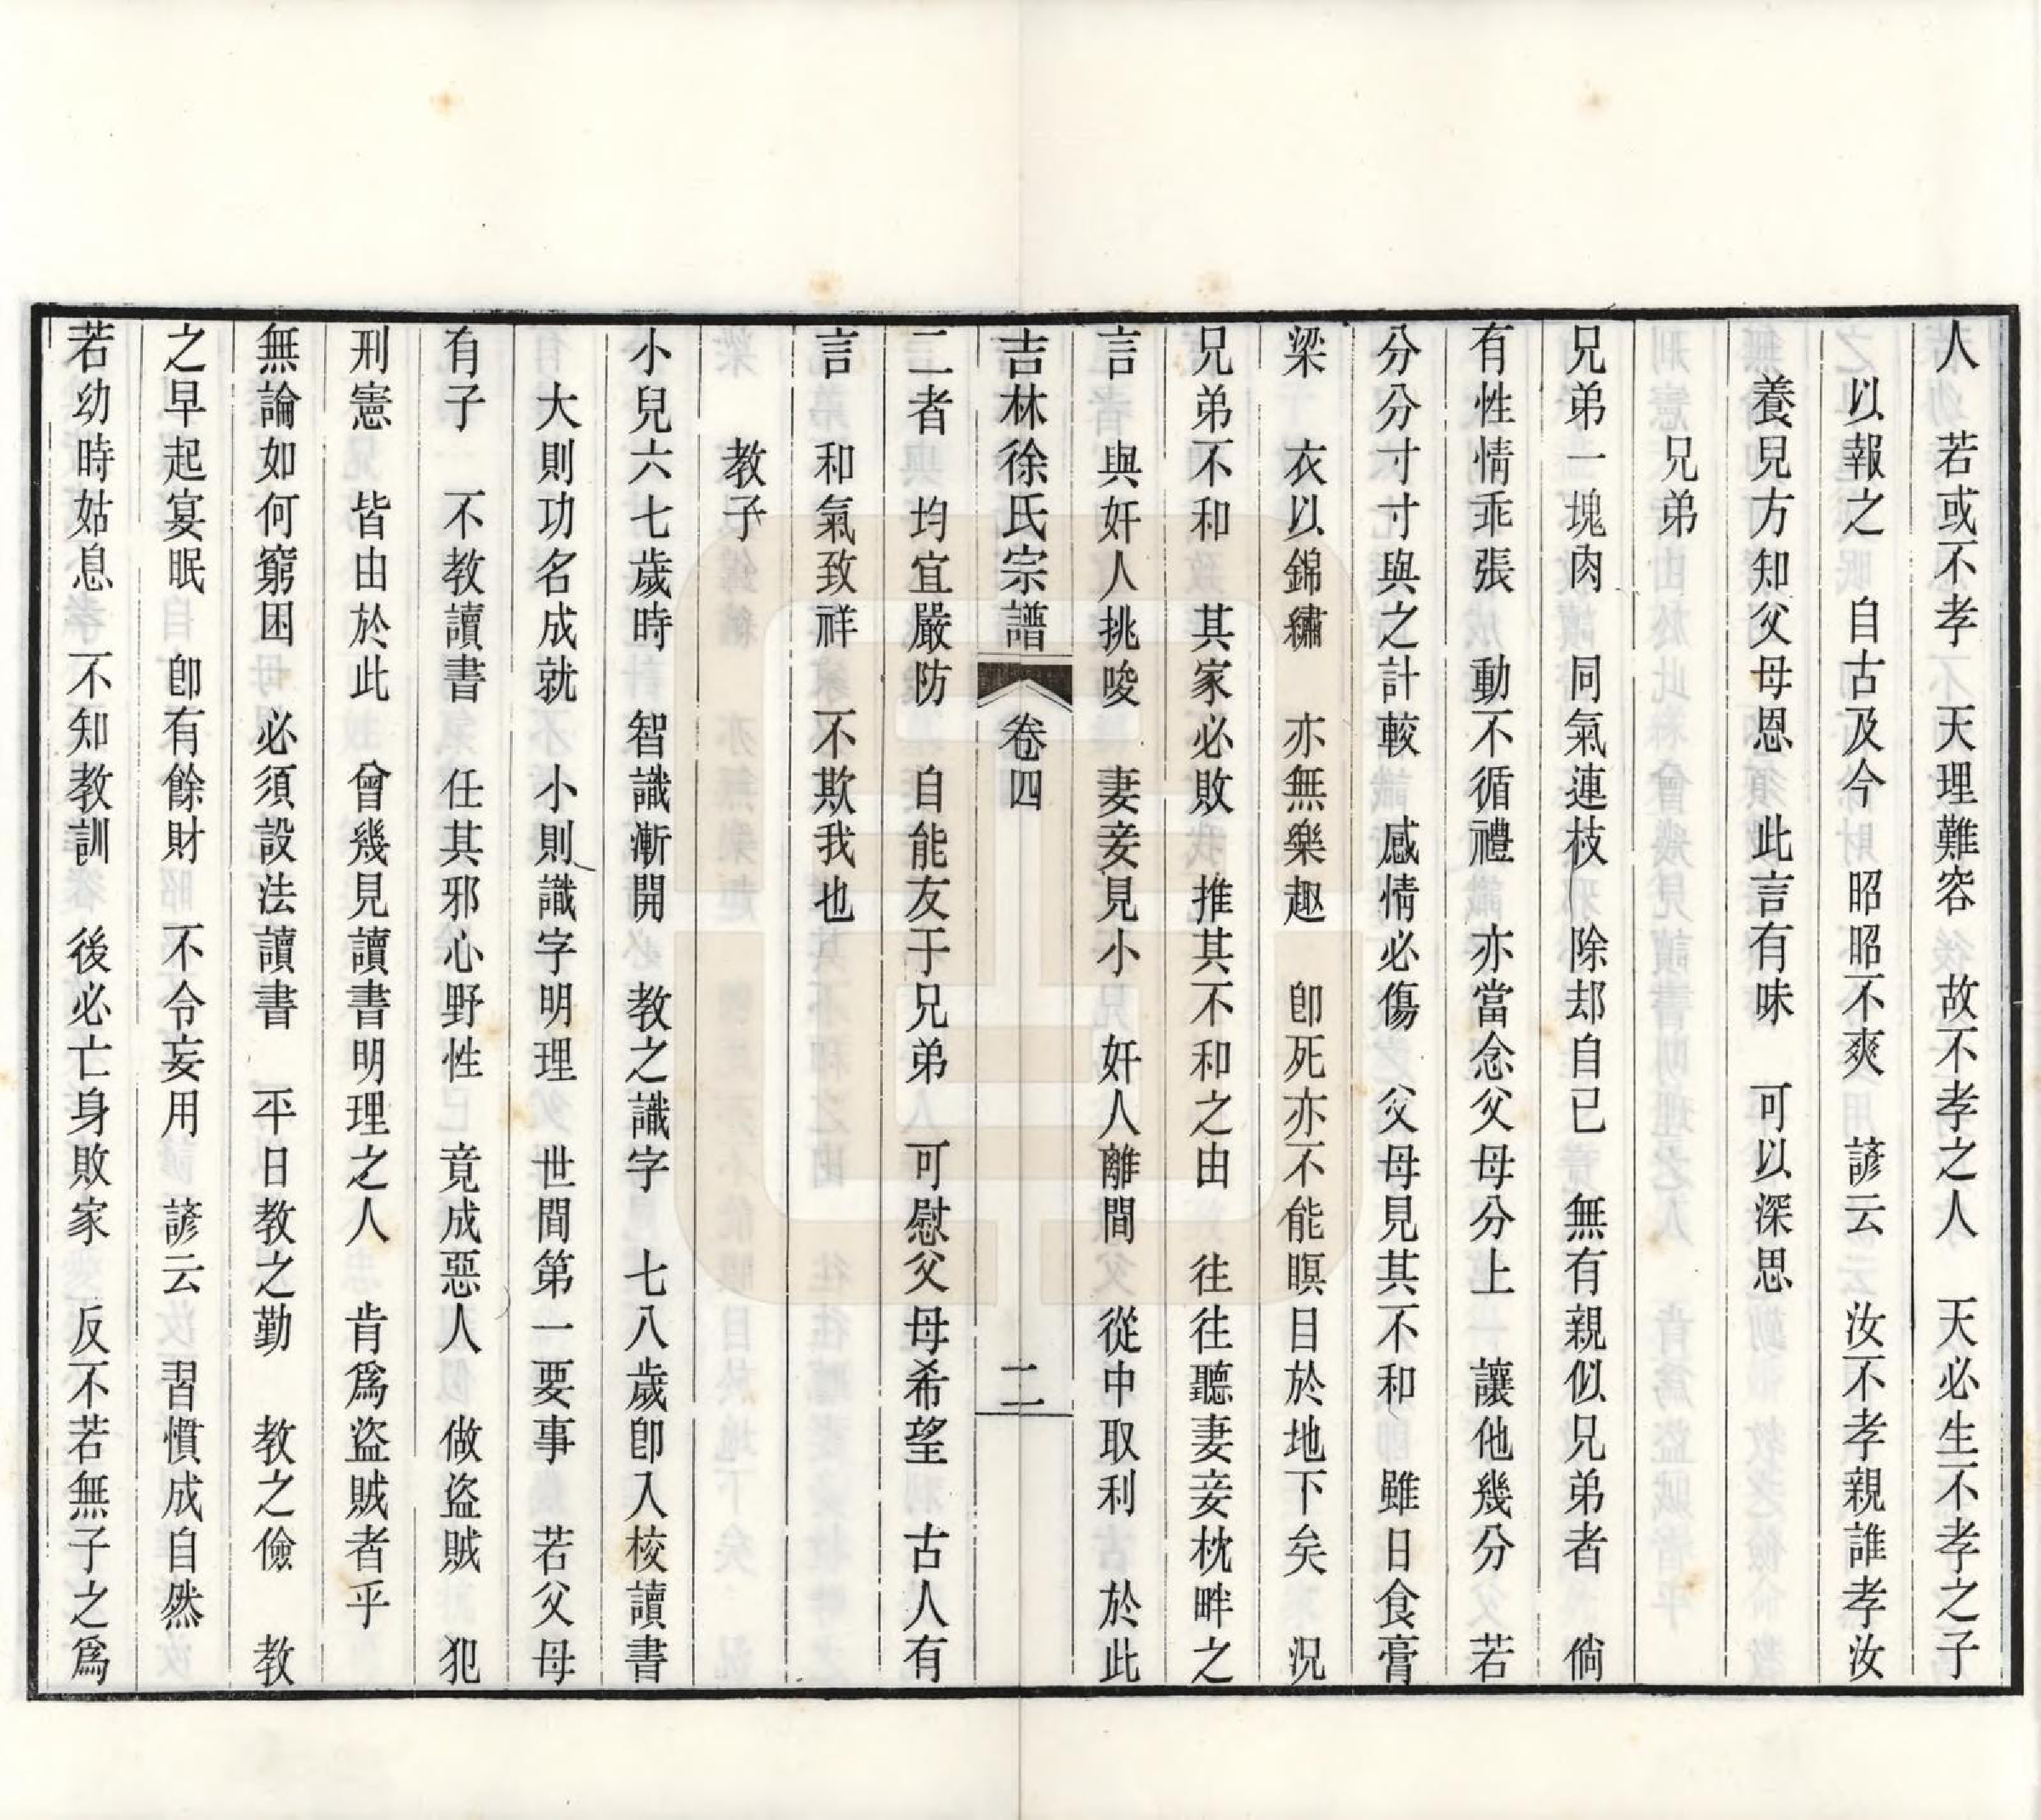 人　若或不孝　天理難容　故不孝之人　天必生不孝之子
以報之　自古及今　昭昭不爽　諺云　汝不孝親誰孝汝
養見方知父母恩　此言有味　可以深思
兄弟
兄弟一塊肉　同氣連枝　除却自已　無有親似兄弟者　倘
有性情乖張　動不循禮　亦當念父母分上　讓他幾分　若
分分寸寸與之計較　感情必傷　父母見其不和　雖日食膏
梁　衣以錦繡　亦無樂趣　卽死亦不能瞑目於地下矣　況
兄弟不和　其家必敗　推其不和之由　往往聽妻妾枕畔之
言　與奸人挑唆　妻妾見小　奸人離間　從中取利　於此
吉林徐氏宗譜　卷四　二
二者　均宜嚴防　自能友于兄弟　可慰父母希望　古人有
言　和氣致祥　不欺我也
教子
小兒六七歲時　智識漸開　教之識字　七八歲卽入校讀書
大則功名成就　小則識字明理　世間第一要事　若父母
有子　不教讀書　任其邪心野性　竟成惡人　做盜賊　犯
刑憲　皆由於此　曾幾見讀書明理之人　肯爲盜賊者乎
無論如何窮困　必須設法讀書　平日教之勤　教之儉　教
之早起宴眠　卽有餘財　不令妄用　諺云　習慣成自然
若幼時姑息　不知教訓　後必亡身敗家　反不若無子之爲